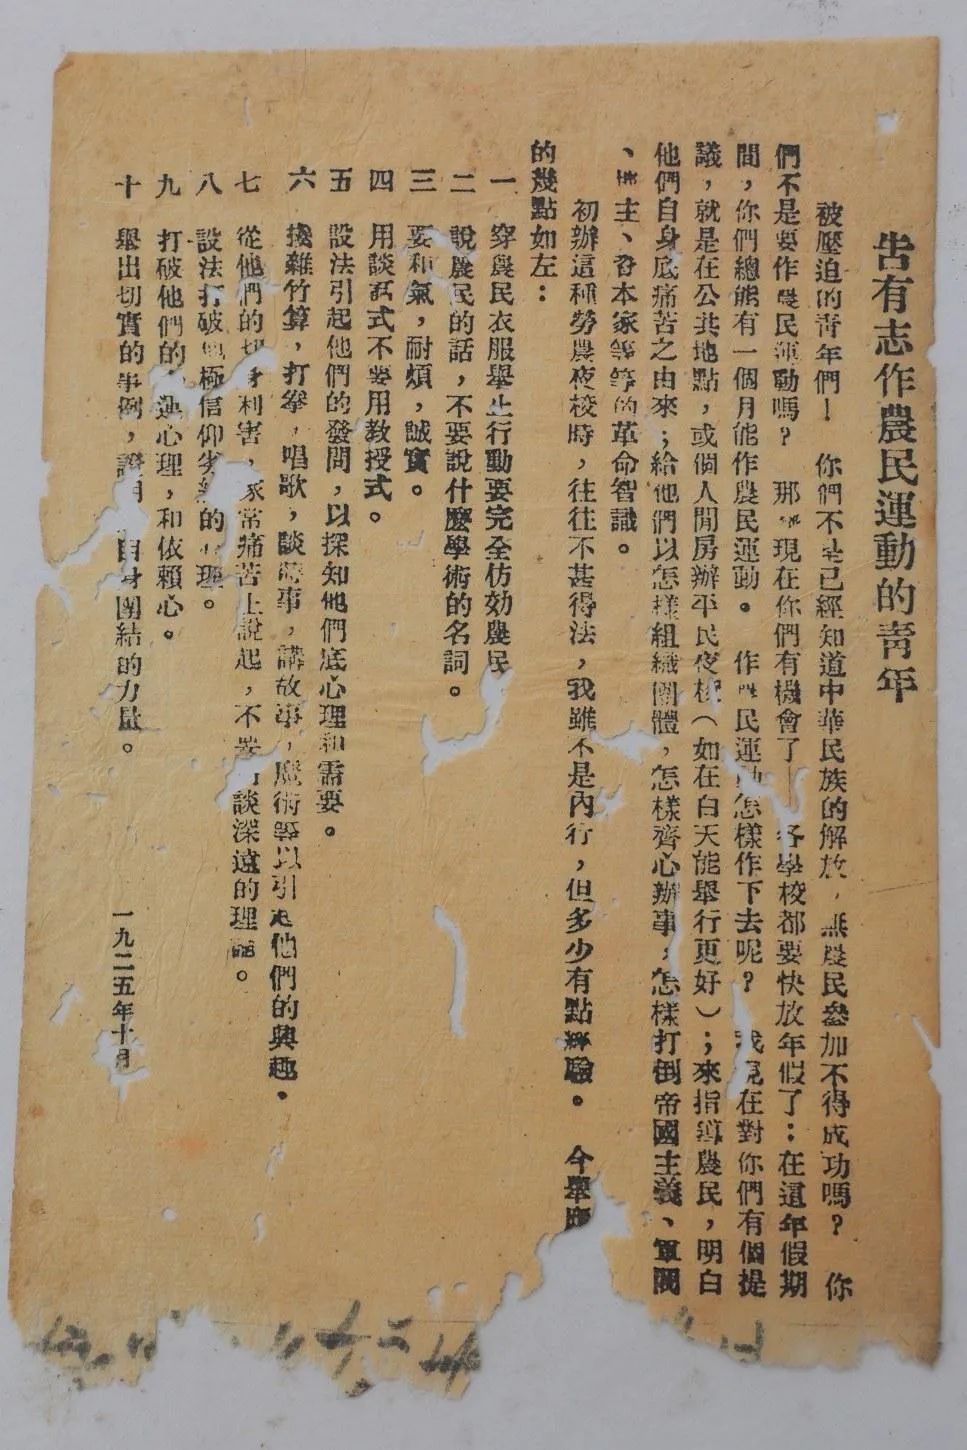 告有志作農民運動的青年
被壓迫的青年們！　你們不是已經知道中華民族的解放，無農民參加不得成功嗎？　你
們不是要作農民運動嗎？　那　現在你們有機會了　各學校都要快放年假了：在這年假期
間，你們總能有一個月能作農民運動。　作農民運動怎樣作下去呢？　我現在對你們有個提
議，就是在公共地點，或個人閒房辦平民夜校（如在白天能舉行更好）；來指導農民，明白
他們自身底痛苦之由來；給他們以怎樣組織團體，怎樣齊心辦事，怎樣打倒帝國主義、軍閥
、地主、吞本家等等的革命智識。
初辦這種勞農夜校時，往往不甚得法，我雖不是內行，但多少有點經驗。　今舉應
的幾點如左：
一　穿農民衣服舉止行動要完全仿効農民
二　說農民的話，不要說什麼學術的名詞。
三　要和氣，耐煩，誠實。
四　用談話式不要用教授式。
五　設法引起他們的發問，以探知他們底心理和需要。
六　擾雜竹算，打拳，唱歌，談時事，講故事，魔術等以引起他們的興趣．
七　從他們的切身利害，家常痛苦上說起，不要　談深遠的理論。
八　設法打破　極信仰劣紳的心理。
九　打破他們的　迷心理，和依賴心。
十　舉出切實的事例，證明　自身團結的力量。
一九二五年十月